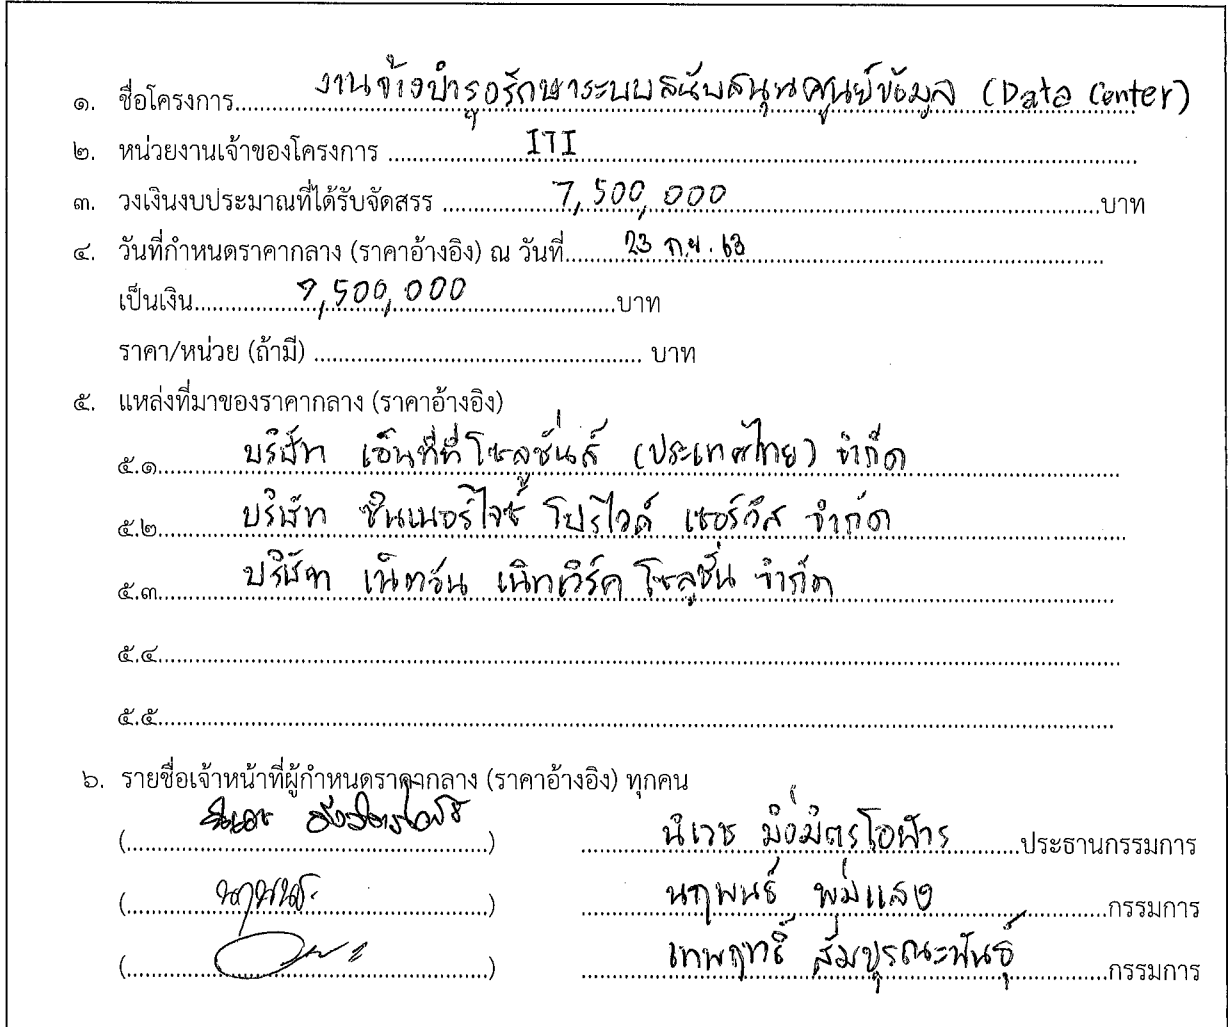 ๑. ชื่อโครงการ งานจ้างบำรุงรักษาระบบสนับสนุนศูนย์ข้อมูล (Data Center)
๒. หน่วยงานเจ้าของโครงการ ITI
๓. วงเงินงบประมาณที่ได้รับจัดสรร 7,500,000 บาท
๔. วันที่กำหนดราคากลาง (ราคาอ้างอิง) ณ วันที่ 23 ก.ย. 63
เป็นเงิน 7,500,000 บาท
ราคา/หน่วย (ถ้ามี) บาท
๕. แหล่งที่มาของราคากลาง (ราคาอ้างอิง)
๕.๑ บริษัท เอ็นทีที โซลูชั่นส์ (ประเทศไทย) จำกัด
๕.๒ บริษัท ซินเนอร์ไจซ์ โปรไวด์ เซอร์วิส จำกัด
๕.๓ บริษัท เน็ตวัน เน็ทเวิร์ค โซลูชั่น จำกัด
๕.๔
๕.๕
๖. รายชื่อเจ้าหน้าที่ผู้กำหนดราคากลาง (ราคาอ้างอิง) ทุกคน
( ) นิเวช มิ่งมิตรโอฬาร ประธานกรรมการ
( ) นฤพนธ์ พุ่มแสง กรรมการ
( ) เทพฤทธิ์ สัมบูรณะพันธุ์ กรรมการ